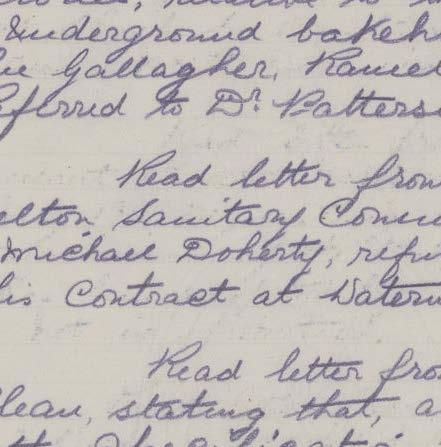 Underground bakeh
Gallagher, Ramel
eferred to Dr. Patterso
Read letter from
elton Sanitary Comm
Michael Doherty, refu
his Contract at Water
Read letter fro
lean, stating that, a